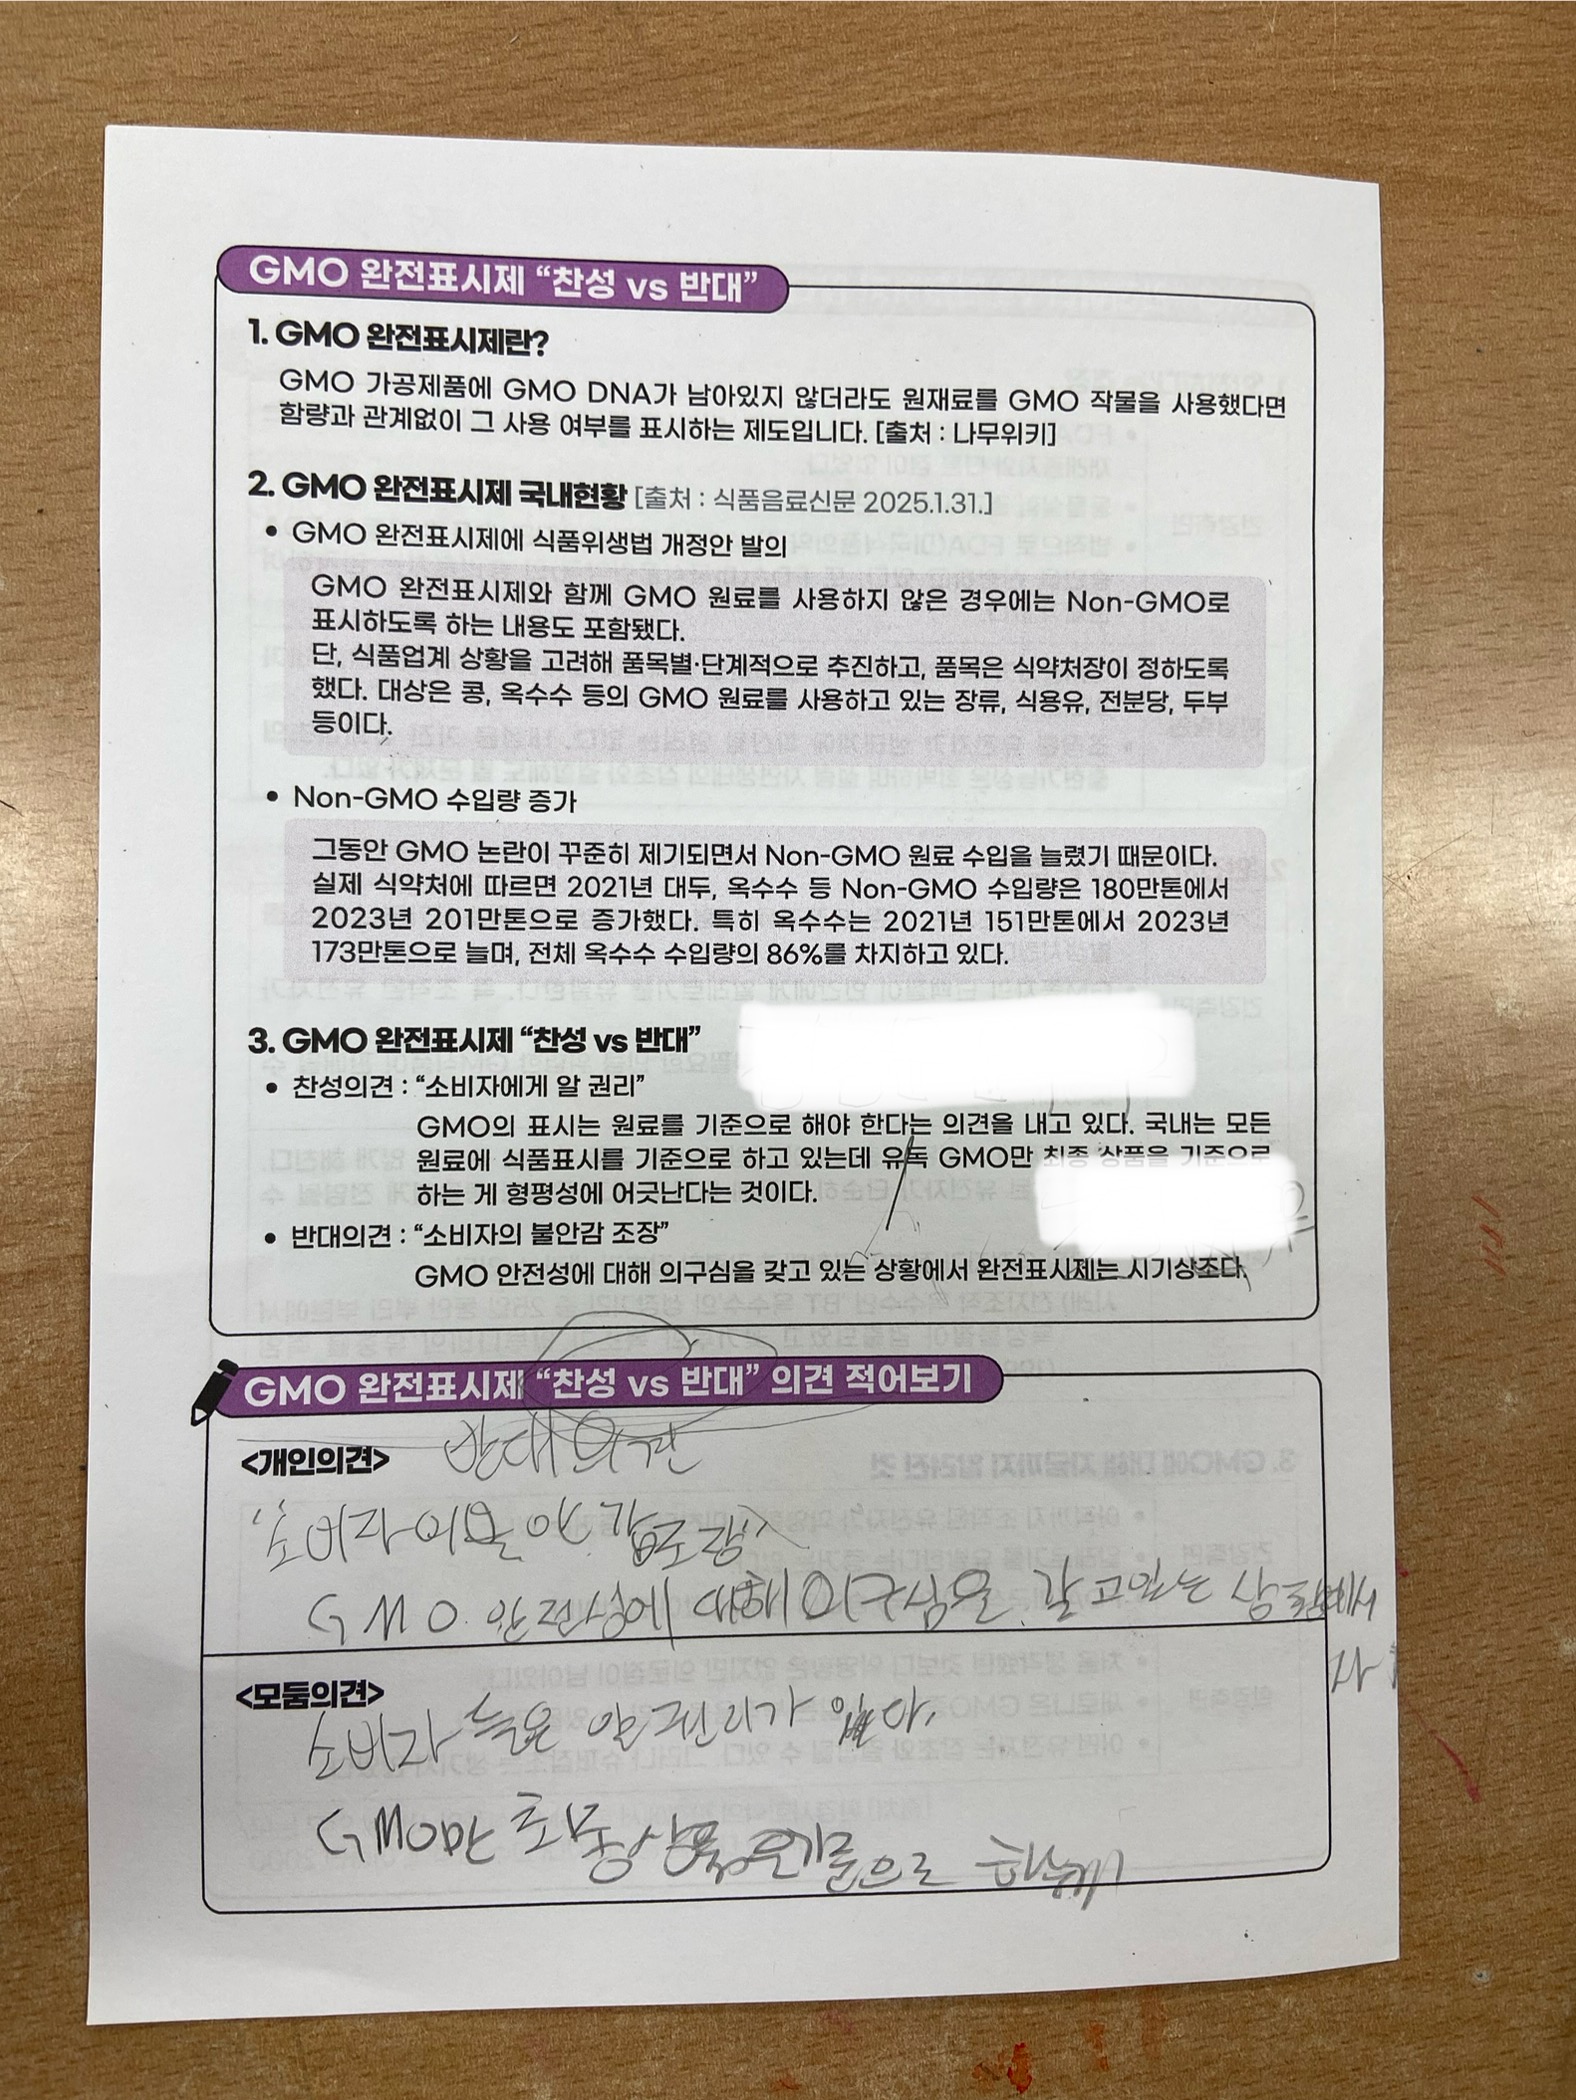 GMO 완전표시제 “찬성 vs 반대”
1. GMO 완전표시제란?
GMO 가공제품에 GMO DNA가 남아있지 않더라도 원재료를 GMO 작물을 사용했다면
함량과 관계없이 그 사용 여부를 표시하는 제도입니다. [출처 : 나무위키]
2. GMO 완전표시제 국내현황 [출처 : 식품음료신문 2025.1.31.]
• GMO 완전표시제에 식품위생법 개정안 발의
GMO 완전표시제와 함께 GMO 원료를 사용하지 않은 경우에는 Non-GMO로
표시하도록 하는 내용도 포함됐다.
단, 식품업계 상황을 고려해 품목별·단계적으로 추진하고, 품목은 식약처장이 정하도록
했다. 대상은 콩, 옥수수 등의 GMO 원료를 사용하고 있는 장류, 식용유, 전분당, 두부
등이다.
• Non-GMO 수입량 증가
그동안 GMO 논란이 꾸준히 제기되면서 Non-GMO 원료 수입을 늘렸기 때문이다.
실제 식약처에 따르면 2021년 대두, 옥수수 등 Non-GMO 수입량은 180만톤에서
2023년 201만톤으로 증가했다. 특히 옥수수는 2021년 151만톤에서 2023년
173만톤으로 늘며, 전체 옥수수 수입량의 86%를 차지하고 있다.
3. GMO 완전표시제 “찬성 vs 반대”
• 찬성의견 : “소비자에게 알 권리”
GMO의 표시는 원료를 기준으로 해야 한다는 의견을 내고 있다. 국내는 모든
원료에 식품표시를 기준으로 하고 있는데 유독 GMO만 최종 상품을 기준으로
하는 게 형평성에 어긋난다는 것이다.
• 반대의견 : “소비자의 불안감 조장”
GMO 안전성에 대해 의구심을 갖고 있는 상황에서 완전표시제는 시기상조다.
GMO 완전표시제 “찬성 vs 반대” 의견 적어보기
<개인의견> 반대의견
GMO 안전성에 대해 의구심을 갖고있는
<모둠의견>
소비자 들은 알 권리가 있다.
GMO만 최종상품을 기준으로 하는게